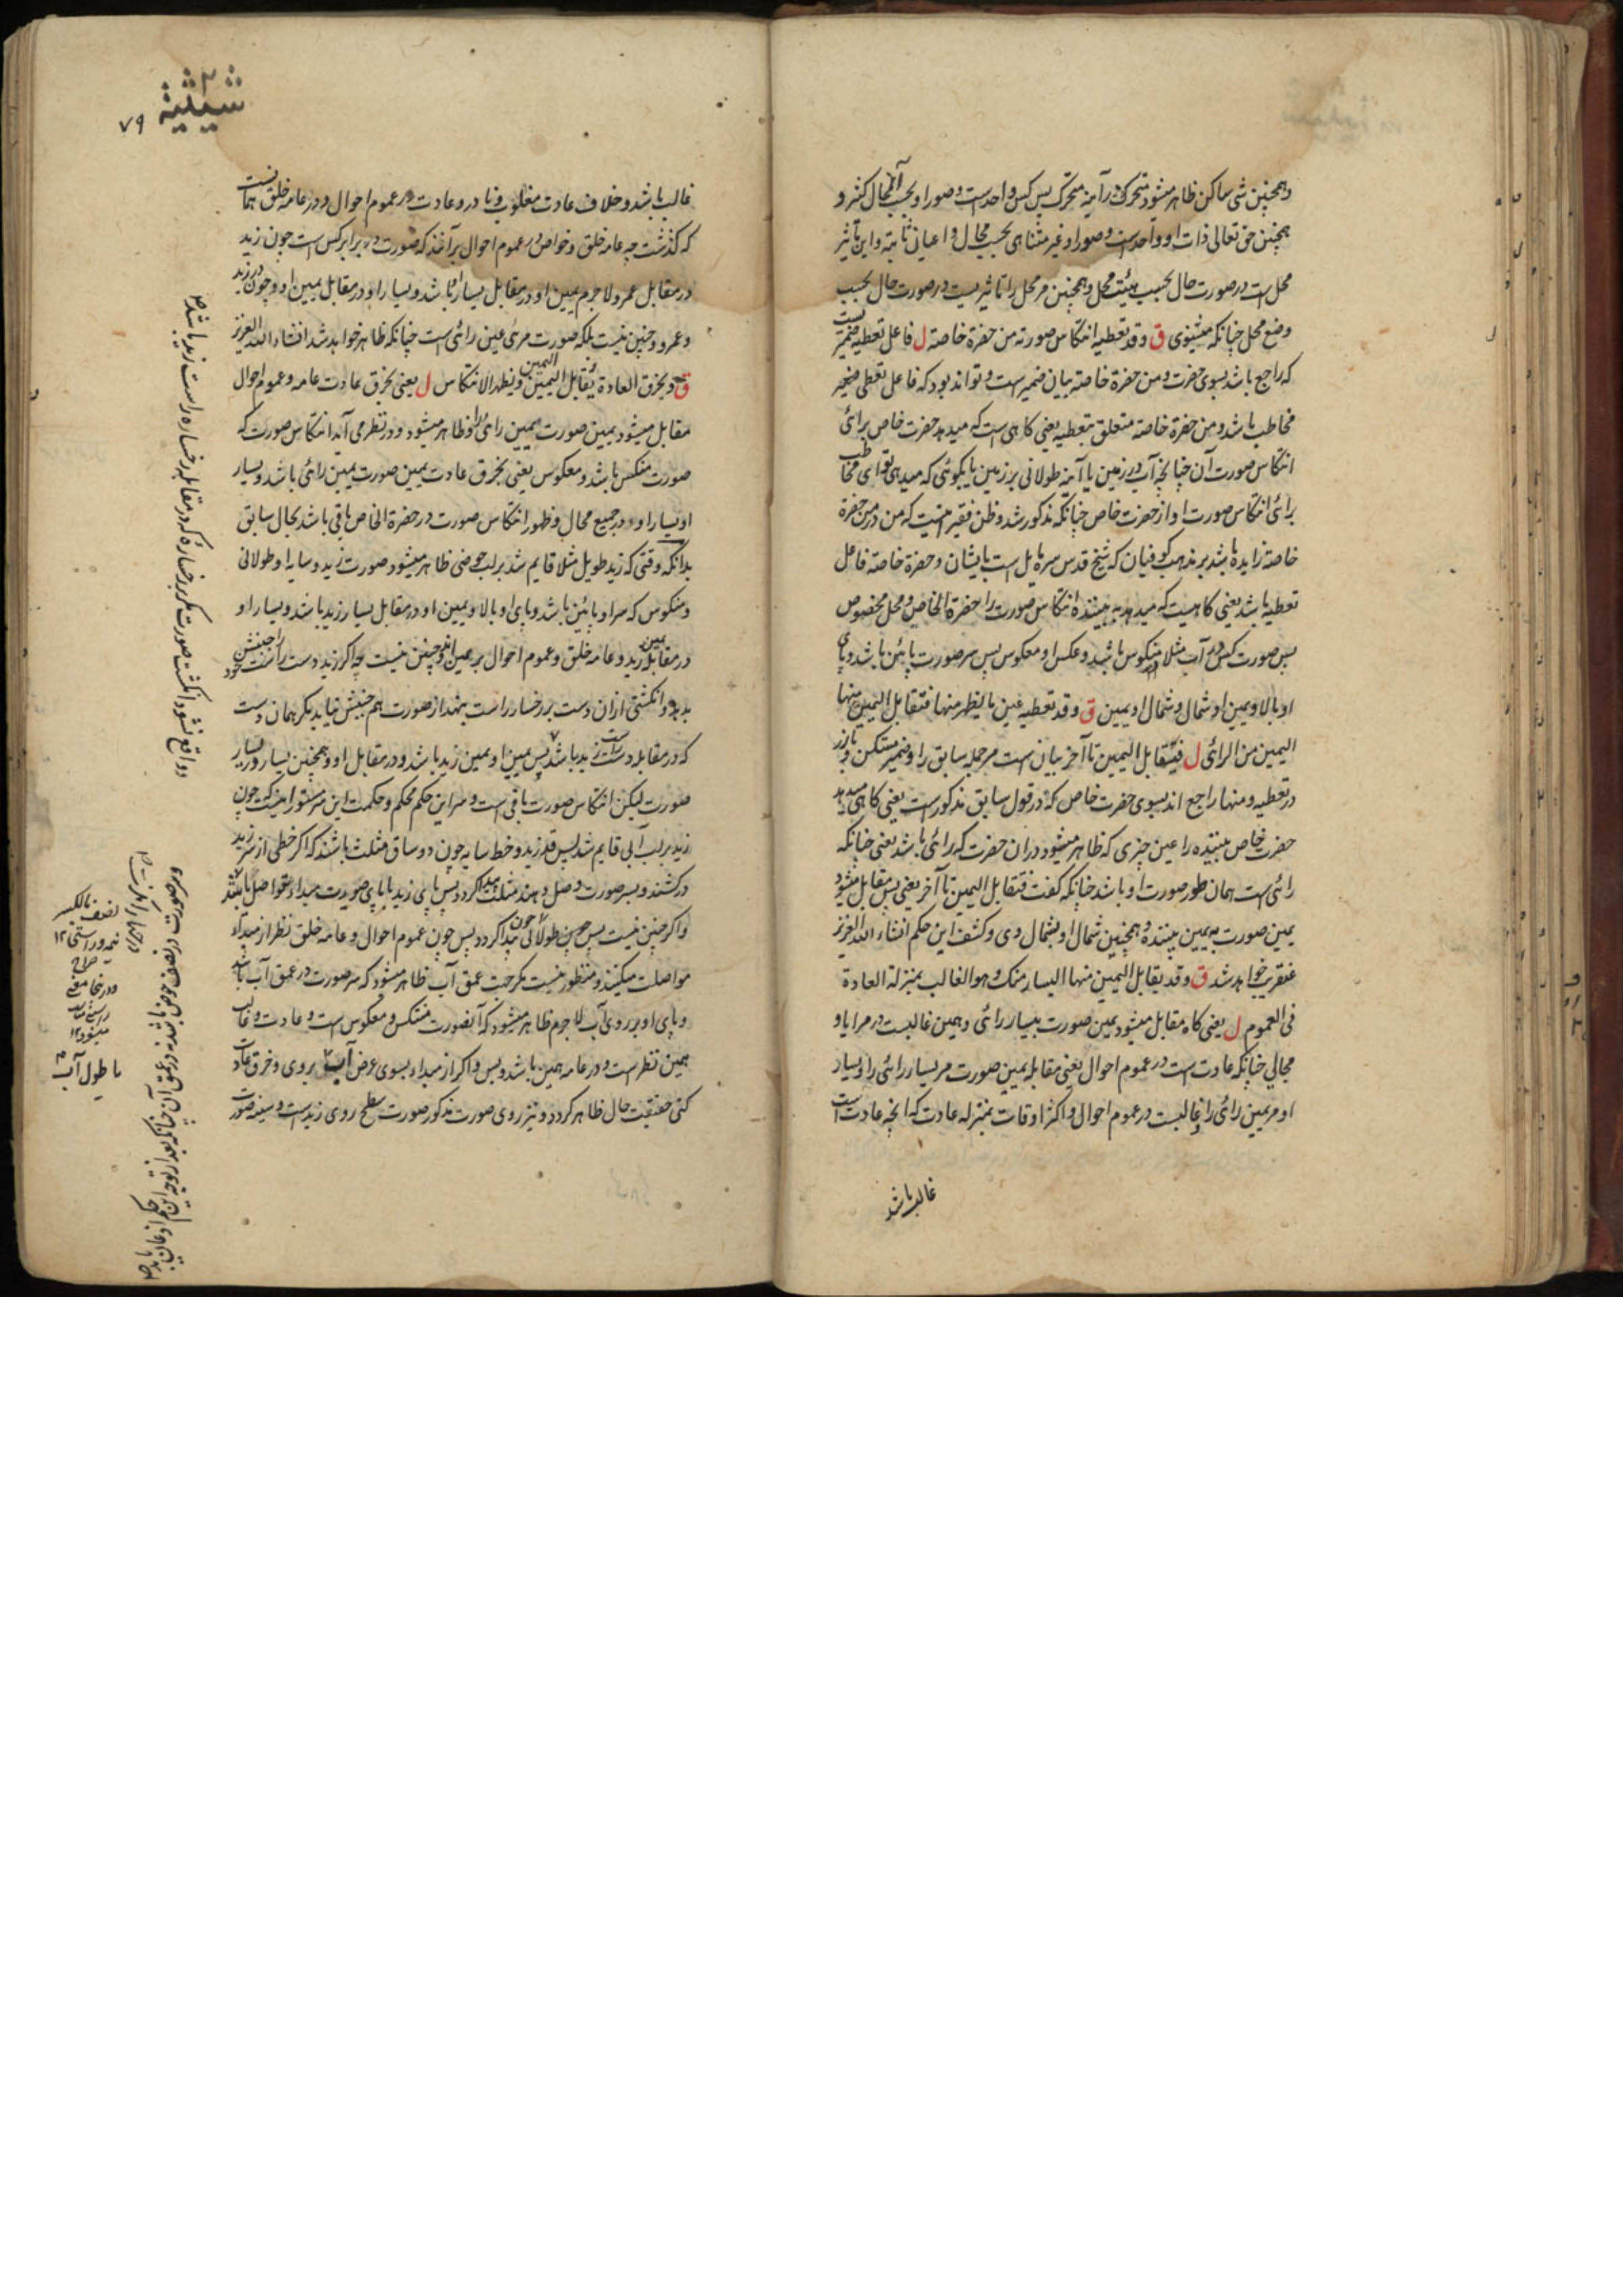 وهمچنین شی ساکن ظاهر میشود متحرک در آینه متحرک پس کس واحدست و صور او بحسب المجال کثر و
همچنین حق تعالی ذات او واحدست و صور او غیر متناهی بحسب مجال و اعیان ثابته و این تاثیر
محل است در صورت حال بحسب هیئت محل و همچنین مر محل را تاثیریست در صورت حال بحسب
وضع محل چنانکه میشنوی ق وقد تعطیه انتکاس صورته من حضرة خاصة ل فاعل تعطیه ضمیریست
که راجع باشد بسوی حضرت و من حضرة خاصة بیان ضمیرست و تواند بود که فاعل تعطی ضمیر
مخاطب باشد و من حضرة خاصة متعلق بتعطیه یعنی کاهی است که میدهد حضرت خاص برائی
انتکاس صورت آن چنانچه آب در زمین یا آینه طولانی بر زمین یا بکوئی که میدهی تو ای مخاطب
برائی انتکاس صورت او از حضرت خاص چنانکه مذکور شد و ظن فقیر اینست که من در من حضرة
خاصة زایده باشد بر مذهب کوفیان که شیخ قدس سره مایل است بایشان و حضرة خاصة فاعل
تعطیه باشد یعنی کاهیست که میدهد به بیننده انتکاس صورت را حضرة الخاص و محل مخصوص
پس صورت کس در آب مثلا منکوس باشد و عکس او معکوس پس سر صورت پائین باشد و پای
او بالا و یمین او شمال و شمال او یمین ق وقد تعطیه عین ما یظهر منها فتقابل الیمین منها
الیمین من الرائی ل فیتقابل الیمین تا آخر بیان است مر جمله سابق را و ضمیر مستکن و بارز
در تعطیه و منها راجع اند بسوی حضرت خاص که در قول سابق مذکورست یعنی کاهی میدهد
حضرت خاص بیننده را عین چیزی که ظاهر میشود در ان حضرت که رائی باشد یعنی چنانکه
رائی است همان طور صورت او باشد چنانکه کفت فتقابل الیمین تا آخر یعنی پس مقابل میشود
یمین صورت به یمین بیننده و همچنین شمال او بشمال وی و کشف این حکم انشاء الله العزیز
عنقریب خواهد شد ق وقد یقابل الیمین منها الیسار منک و هو الغالب بمنزلة العادة
فی العموم ل یعنی کاه مقابل میشود یمین صورت بیسار رائی و همین غالبست در مرایا و
مجالی چنانکه عادت است در عموم احوال یعنی مقابله یمین صورت مر یسار رائی را و یسار
او مر یمین رائی را غالبست در عموم احوال و اکثر اوقات بمنزله عادت که انچه عادت است
غالب باشد
شیثیه
۷۹
غالب باشد و خلاف عادت مغلوب و نادر و عادت در عموم احوال و در عامه خلق همانست
که کذشت چه عامه خلق و خواص در عموم احوال بر آنند که صورت در برابر کس است چون زید
در مقابل عمرو لاجرم یمین او در مقابل یسار باشد و یسار او در مقابل یمین او و چون در زید
و عمرو و چنین نیست بلکه صورت مرئی عین رائی است چنانکه ظاهر خواهد شد انشاء الله العزیز
ق وبخرق العادة یقابل الیمین الیمین ویظهر الانتکاس ل یعنی بخرق عادت عامه و عموم احوال
مقابل میشود یمین صورت بیمین رائی را و ظاهر میشود و در نظر می آید انتکاس صورت که
صورت منتکس باشد و معکوس یعنی بخرق عادت یمین صورت یمین رائی باشد و یسار
او یسار او و در جمیع مجال و ظهور انتکاس صورت در حضرة الخاص باقی باشد بحال سابق
بدانکه وقتی که زید طویل مثلا قایم شد بر لب حوضی ظاهر میشود صورت زید و سایه او طولانی
و منکوس که سر او پائین باشد و پای او بالا و یمین او در مقابل یسار زید باشد و یسار او
در مقابله یمین زید و عامه خلق و عموم احوال بر همین اند و چنین نیست چه اکر زید دست راست خود را جنبش
بدهد و انکشتی ازان دست بر رخسار راست بنهد از صورت هم جنبش نیاید مکر همان دست
که در مقابله دست راست زید باشد پس یمین او یمین زید باشد و در مقابل او و همچنین یسار در یسار
صورت لیکن انتکاس صورت باقی است و سر این حکم محکم و حکمت این سر مستور اینست که چون
زید بر لب آبی قایم شد پس قد زید و خط سایه چون دو ساق مثلث باشند که اکر خطی از سر زید
در کشند و بسر صورت وصل دهند مثلث پیدا کردد پس پای زید با پای صورت مبداء تواصل باشند
و اکر چنین نیست پس جسمین طولانی چون پیدا کردد پس چون عموم احوال و عامه خلق نظر از مبداء
مواصلت میکنند و منظور نیست مکر جهت عمق آب ظاهر میشود که سر صورت در عمق آب باشد
و پای او بر روی آب لاجرم ظاهر میشود که آنصورت منتکس و معکوس است و عادت و غالب
همین نظر است و در عامه همین باشد و بس و اکر از مبداء بسوی عرض آب بروی و خرق عادت
کنی حقیقت حال ظاهر کردد و نیز روی صورت مذکور صورت سطح روی زیدست و سینه صورت
و واقع نشود انکشت صورت مکر بر رخساره که در مقابله رخساره راست زید باشد
صورت در نصف حوض باشد نه در عمق آن چنانکه بعد از توجه این حکم اذعان باید
با طول آب